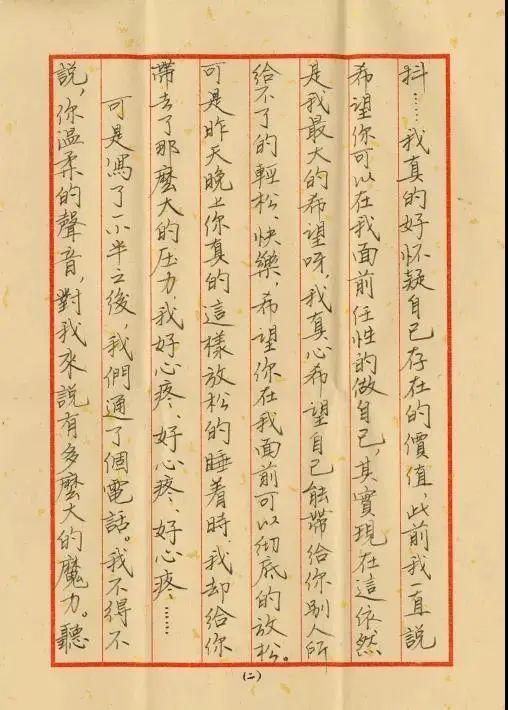 抖……我真的好怀疑自己存在的價值，此前我一直說
希望你可以在我面前任性的做自己，其實現在這依然
是我最大的希望呀，我真心希望自己能帶给你别人所
给不了的輕松、快樂，希望你在我面前可以彻底的放松。
可是昨天晚上你真的這樣放松的睡着時，我却给你
帶去了那麽大的压力，我好心疼、好心疼、好心疼……
可是寫了一小半之後，我們通了個電話。我不得不
說，你温柔的聲音，對我來說有多麽大的魔力。聽
(二)